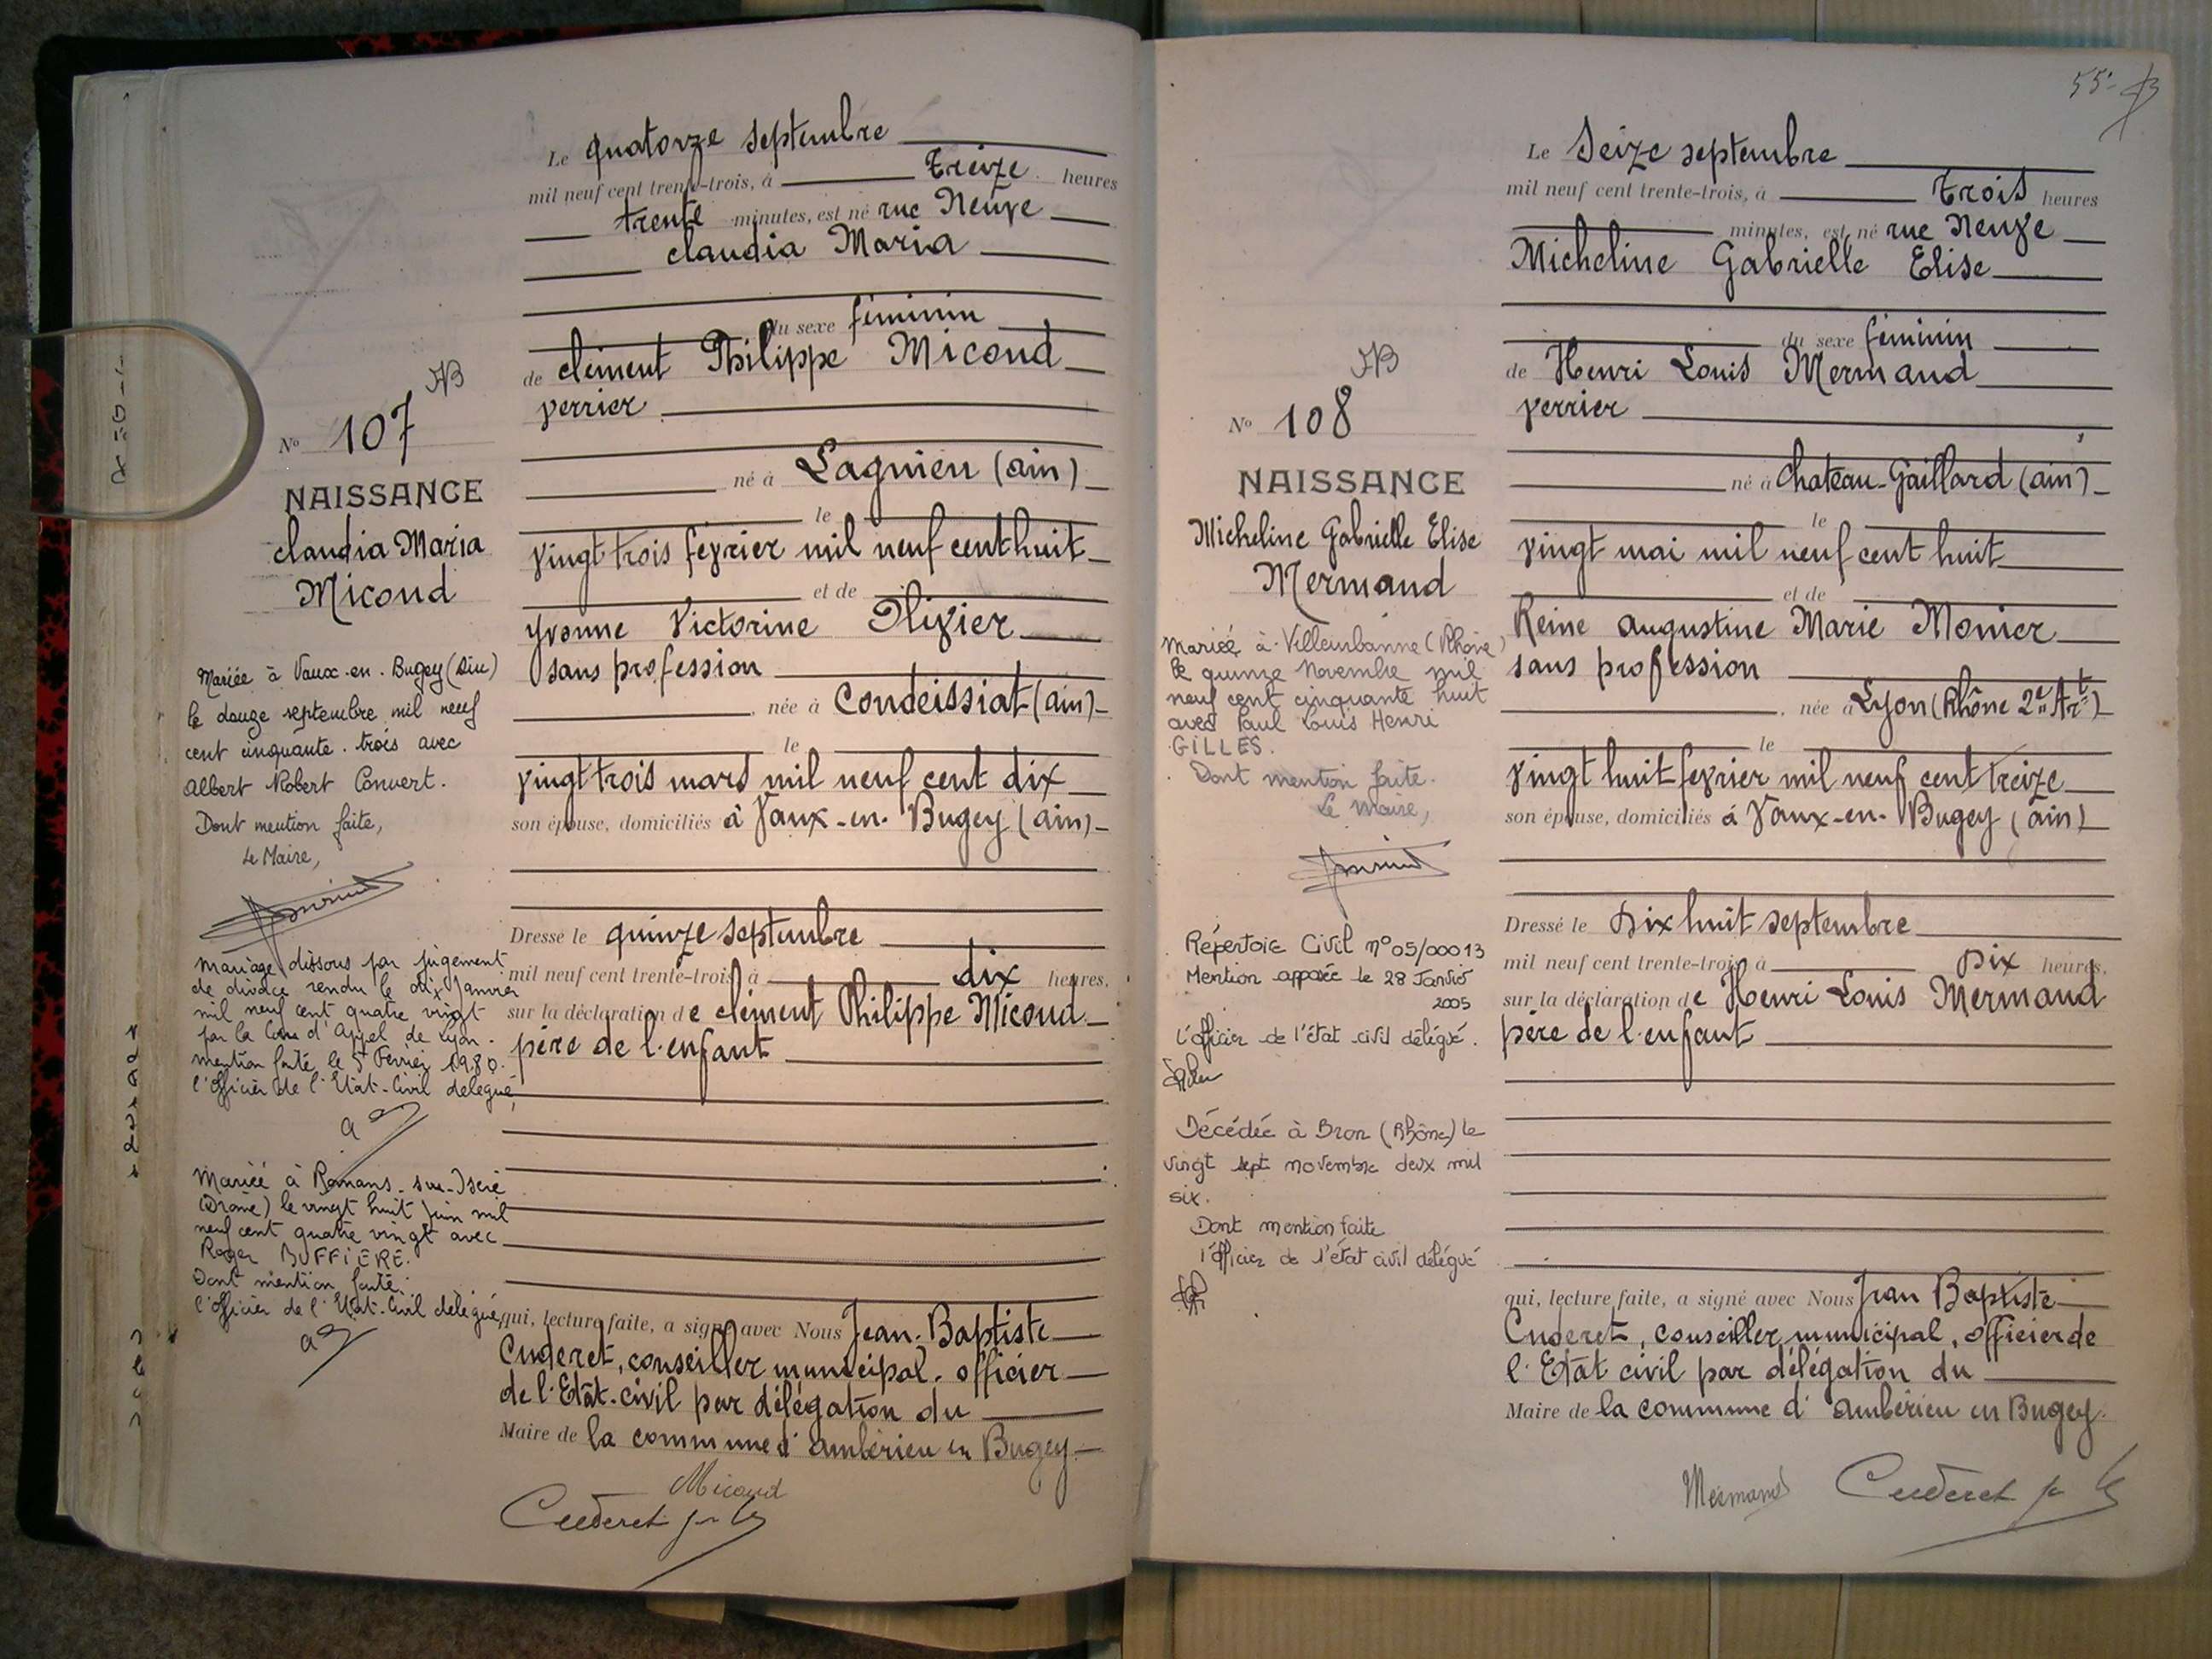 Le quatorze septembre
mil neuf cent trente-trois, à treize heures
trente minutes, est né rue Neuve
claudia Maria
du sexe féminin
de clément Philippe Micoud
verrier
né à Lagnieu (ain)
le
vingt trois février mil neuf cent huit
et de
Yvonne Victorine Olivier
sans profession
née à Condeissiat (ain)
le
vingt trois mars mil neuf cent dix
son épouse, domiciliés à Vaux-en-Bugey (ain)
Dressé le quinze septembre
mil neuf cent trente-trois, à dix heures,
sur la déclaration de clément Philippe Micoud
père de l'enfant
qui, lecture faite, a signé avec Nous Jean-Baptiste
Cuderet, conseiller municipal, officier
de l'Etat-civil par délégation du
Maire de la commune d'ambérieu en Bugey
Micoud
Cuderet
N° 107
NAISSANCE
claudia Maria
Micoud
Mariée à Vaux-en-Bugey (Ain)
le douze septembre mil neuf
cent cinquante-trois avec
Albert Robert Convert.
Dont mention faite,
Le Maire,
Mariage dissous par jugement
de divorce rendu le dix Janvier
mil neuf cent quatre vingt
par la Cour d'Appel de Lyon.
mention faite le 5 Février 1980.
l'officier de l'Etat-Civil délégué,
Mariée à Romans-sur-Isère
(Drôme) le vingt huit Juin mil
neuf cent quatre vingt avec
Roger BUFFIERE.
Dont mention faite.
l'officier de l'Etat-Civil délégué,
55
Le Seize septembre
mil neuf cent trente-trois, à trois heures
minutes, est né rue Neuve
Micheline Gabrielle Elise
du sexe féminin
de Henri Louis Mermand
verrier
né à chateau-Gaillard (ain)
le
vingt mai mil neuf cent huit
et de
Reine augustine Marie Monier
sans profession
née à Lyon (Rhône 2e Art)
le
vingt huit février mil neuf cent treize
son épouse, domiciliés à Vaux-en-Bugey (ain)
Dressé le Dix huit septembre
mil neuf cent trente-trois, à Dix heures,
sur la déclaration de Henri Louis Mermand
père de l'enfant
qui, lecture faite, a signé avec Nous Jean Baptiste
Cuderet, conseiller municipal, officier de
l'Etat civil par délégation du
Maire de la commune d'ambérieu en Bugey.
Mermand Cuderet
N° 108
NAISSANCE
Micheline Gabrielle Elise
Mermand
Mariée à Villeurbanne (Rhône)
le quinze Novembre mil
neuf cent cinquante huit
avec Paul Louis Henri
GILLES.
Dont mention faite.
Le Maire,
Répertoire Civil n° 05/00013
Mention apposée le 28 Janvier
2005
l'officier de l'état civil délégué.
Décédée à Bron (Rhône) le
vingt sept novembre deux mil
six.
Dont mention faite
l'officier de l'état civil délégué